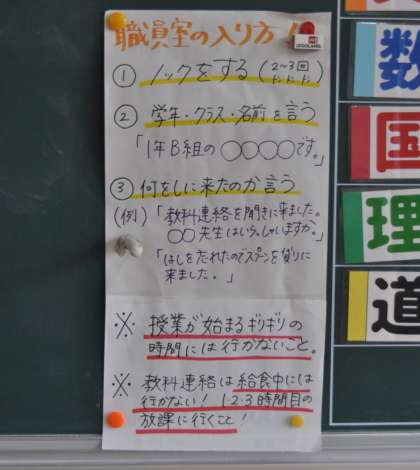 職員室の入り方!
LEGOLAND
① ノックをする(2~3回
ドン、ドン、ドン)
② 学年・クラス・名前を言う
「1年B組の○○○○です。」
③ 何をしに来たのか言う
(例)「教科連絡を聞きに来ました。
○○先生はいらっしゃいますか。」
「はしを忘れたのでスプーンを借りに
来ました。」
※ 授業が始まるギリギリの
時間には行かないこと。
※ 教科連絡は給食中には
行かない! 1・2・3時間目の
放課に行くこと!
数
国
理
道